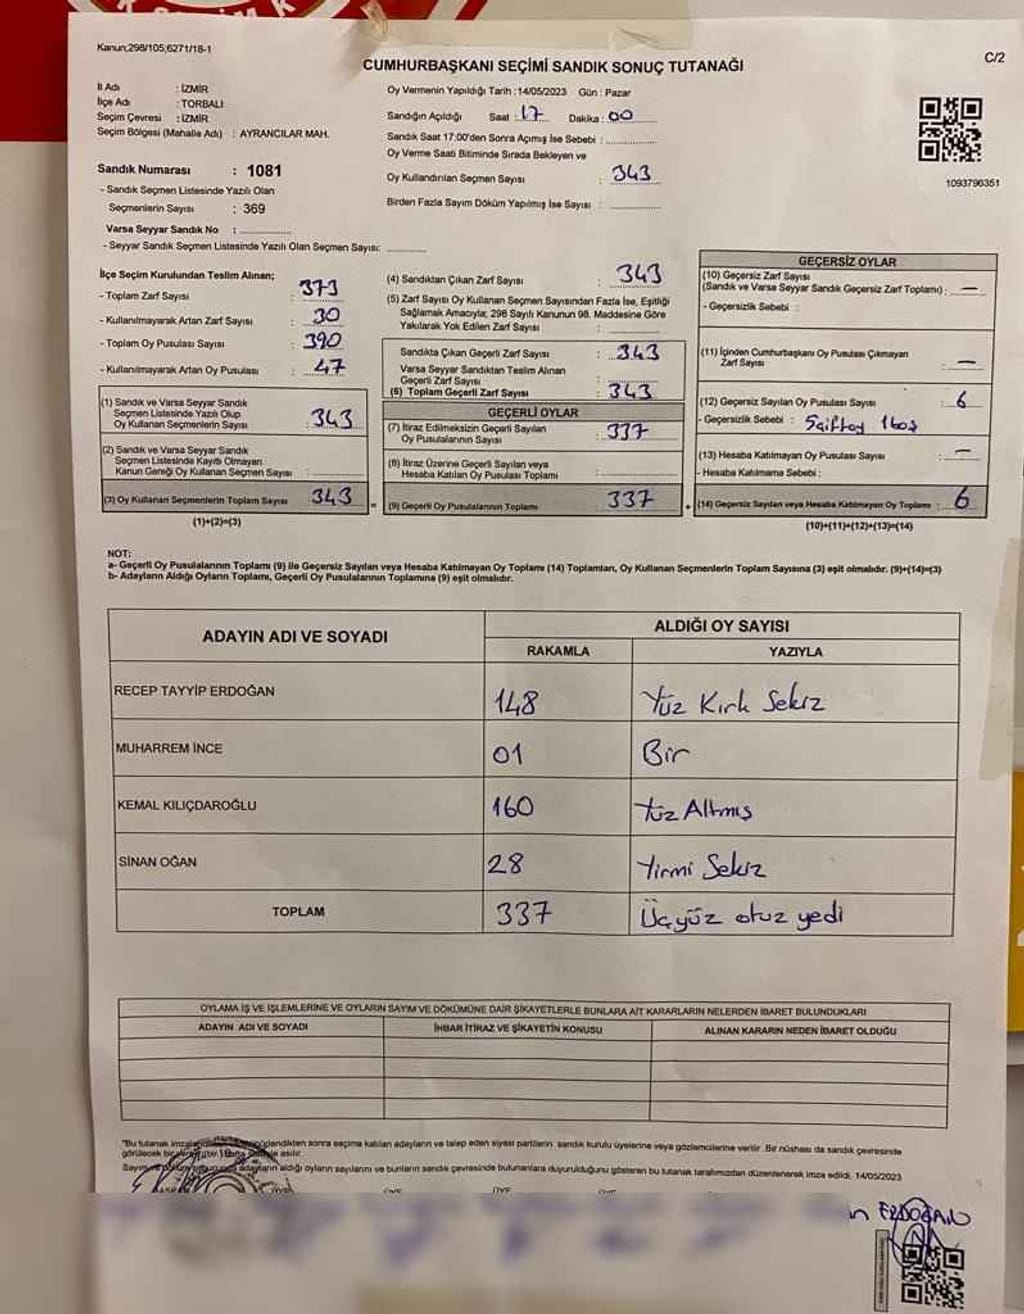 Kanun;298/105;6271/18-1
C/2
CUMHURBAŞKANI SEÇİMİ SANDIK SONUÇ TUTANAĞI
İl Adı : İZMİR
İlçe Adı : TORBALI
Seçim Çevresi : İZMİR
Seçim Bölgesi (Mahalle Adı) : AYRANCILAR MAH.
Oy Vermenin Yapıldığı Tarih : 14/05/2023 Gün : Pazar
Sandığın Açıldığı Saat : 17 Dakika : 00
Sandık Saat 17:00'den Sonra Açmış İse Sebebi :
Oy Verme Saati Bitiminde Sırada Bekleyen ve
Oy Kullandırılan Seçmen Sayısı : 343
Birden Fazla Sayım Döküm Yapılmış İse Sayısı :
1093796351
Sandık Numarası : 1081
- Sandık Seçmen Listesinde Yazılı Olan
Seçmenlerin Sayısı : 369
Varsa Seyyar Sandık No :
- Seyyar Sandık Seçmen Listesinde Yazılı Olan Seçmen Sayısı:
İlçe Seçim Kurulundan Teslim Alınan;
- Toplam Zarf Sayısı : 373
- Kullanılmayarak Artan Zarf Sayısı : 30
- Toplam Oy Pusulası Sayısı : 390
- Kullanılmayarak Artan Oy Pusulası : 47
(1) Sandık ve Varsa Seyyar Sandık
Seçmen Listesinde Yazılı Olup
Oy Kullanan Seçmenlerin Sayısı : 343
(2) Sandık ve Varsa Seyyar Sandık
Seçmen Listesinde Kayıtlı Olmayan
Kanun Gereği Oy Kullanan Seçmen Sayısı :
(3) Oy Kullanan Seçmenlerin Toplam Sayısı : 343
(1)+(2)=(3)
(4) Sandıktan Çıkan Zarf Sayısı : 343
(5) Zarf Sayısı Oy Kullanan Seçmen Sayısından Fazla İse, Eşitliği
Sağlamak Amacıyla; 298 Sayılı Kanunun 98. Maddesine Göre
Yakılarak Yok Edilen Zarf Sayısı :
Sandıkta Çıkan Geçerli Zarf Sayısı : 343
Varsa Seyyar Sandıktan Teslim Alınan
Geçerli Zarf Sayısı :
(6) Toplam Geçerli Zarf Sayısı : 343
GEÇERLİ OYLAR
(7) İtiraz Edilmeksizin Geçerli Sayılan
Oy Pusulalarının Sayısı : 337
(8) İtiraz Üzerine Geçerli Sayılan veya
Hesaba Katılan Oy Pusulası Toplamı :
(9) Geçerli Oy Pusulalarının Toplamı : 337
GEÇERSİZ OYLAR
(10) Geçersiz Zarf Sayısı
(Sandık ve Varsa Seyyar Sandık Geçersiz Zarf Toplamı) : —
- Geçersizlik Sebebi :
(11) İçinden Cumhurbaşkanı Oy Pusulası Çıkmayan
Zarf Sayısı : —
(12) Geçersiz Sayılan Oy Pusulası Sayısı : 6
- Geçersizlik Sebebi :
(13) Hesaba Katılmayan Oy Pusulası Sayısı : —
- Hesaba Katılmama Sebebi :
(14) Geçersiz Sayılan veya Hesaba Katılmayan Oy Toplamı : 6
(10)+(11)+(12)+(13)=(14)
NOT:
a- Geçerli Oy Pusulalarının Toplamı (9) ile Geçersiz Sayılan veya Hesaba Katılmayan Oy Toplamı (14) Toplamları, Oy Kullanan Seçmenlerin Toplam Sayısına (3) eşit olmalıdır. (9)+(14)=(3)
b- Adayların Aldığı Oyların Toplamı, Geçerli Oy Pusulalarının Toplamına (9) eşit olmalıdır.
ADAYIN ADI VE SOYADI
ALDIĞI OY SAYISI
RAKAMLA YAZIYLA
RECEP TAYYİP ERDOĞAN 148 Yüz Kırk Sekiz
MUHARREM İNCE 01 Bir
KEMAL KILIÇDAROĞLU 160 Yüz Altmış
SİNAN OĞAN 28 Yirmi Sekiz
TOPLAM 337 Üçyüz otuz yedi
OYLAMA İŞ VE İŞLEMLERİNE VE OYLARIN SAYIM VE DÖKÜMÜNE DAİR ŞİKAYETLERLE BUNLARA AİT KARARLARIN NELERDEN İBARET BULUNDUKLARI
ADAYIN ADI VE SOYADI İHBAR İTİRAZ VE ŞİKAYETİN KONUSU ALINAN KARARIN NEDEN İBARET OLDUĞU
"Bu tutanak sonra seçime katılan adayların ve talep eden siyasi partilerin sandık kurulu üyelerine veya gözlemcilerine verilir. Bir nüshası da sandık çevresinde
görülecek bir asılır.
adayların aldığı oyların sayılarını ve bunların sandık çevresinde bulunanlara duyurulduğunu gösteren bu tutanak tarafımızdan düzenlenerek imza edildi. 14/05/2023
ERDOĞAN